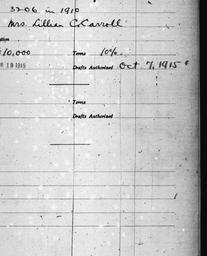 3206 in 1910
Mrs. Lillian C. Carroll
10,000 Terms 10%
1915 Drafts Authorized Oct 7, 1915
Terms
Drafts Authorized